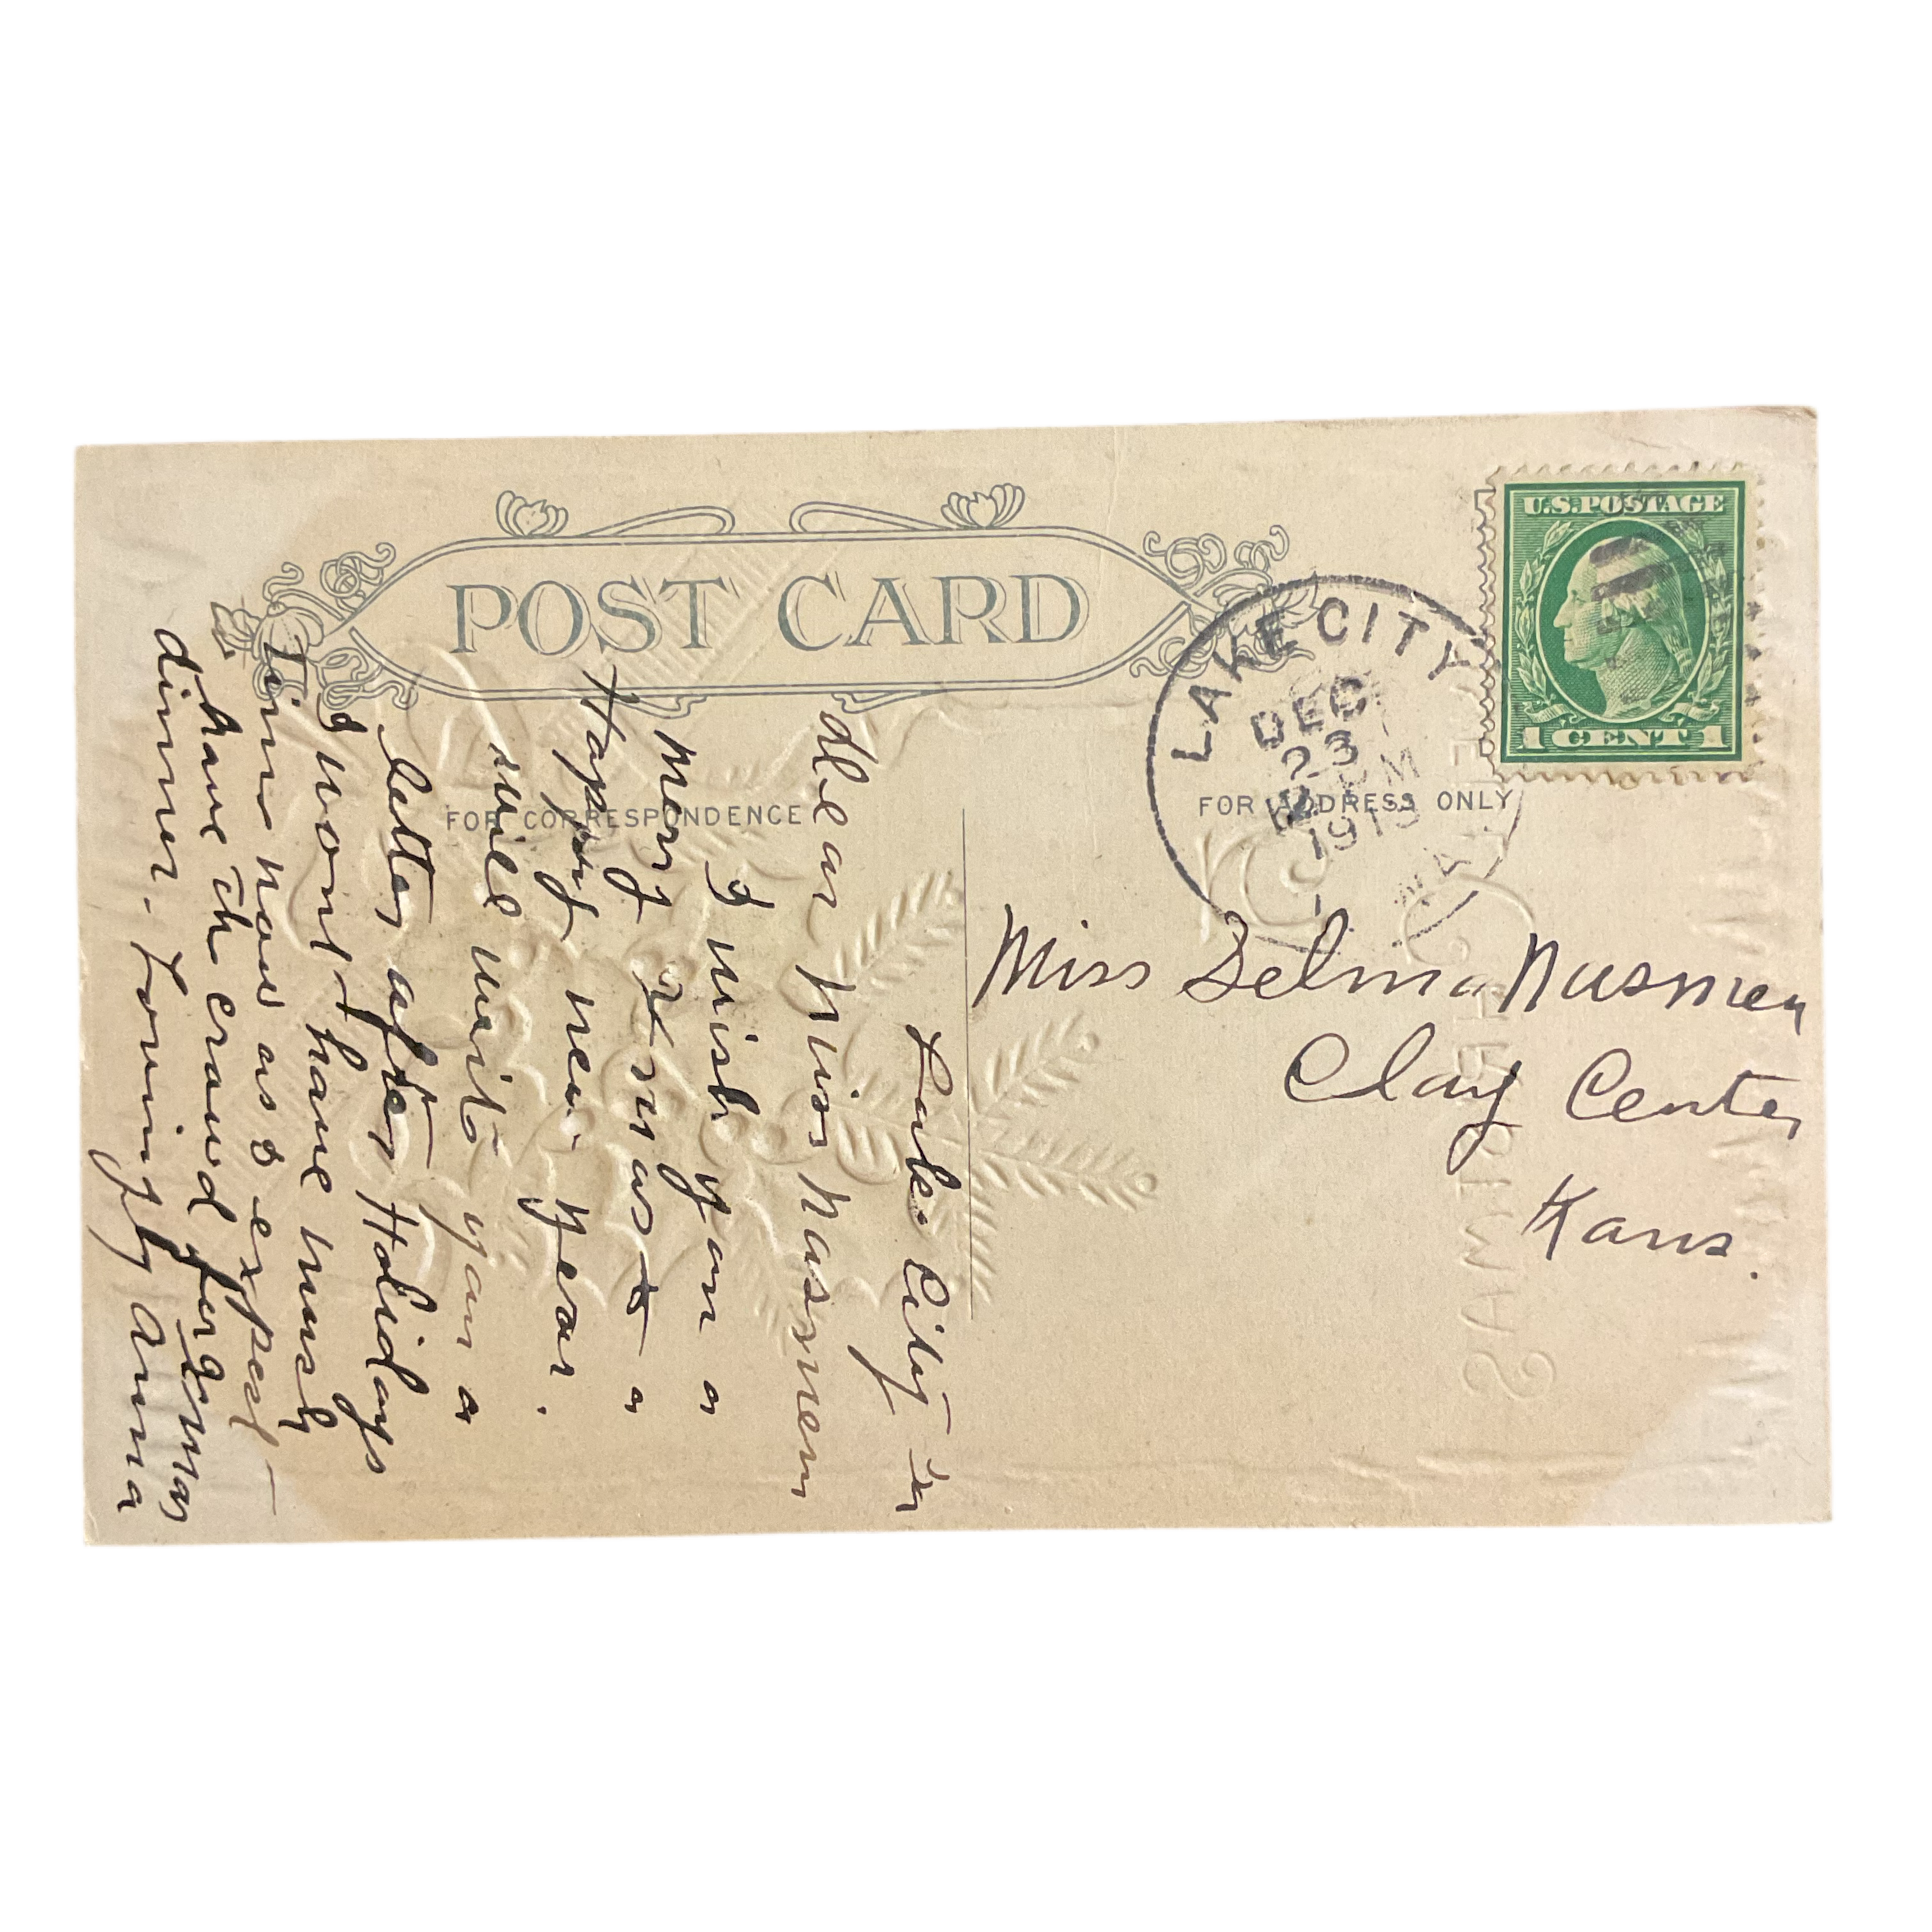 POST CARD
FOR CORRESPONDENCE
FOR ADDRESS ONLY
U.S. POSTAGE
1 CENT 1
LAKE CITY
DEC
23
PM
Miss Selma Nasmen
Clay Center
Kans.
Lake City Ia
Dear Miss Nasmem
I wish you a
Mery Xmas & a
Happy new year.
Will write you a
letter after Holidays
I wont have much
Time now as I expect
to have the crowd for Xmas
dinner. Lovingly Anna
CHRISTMAS